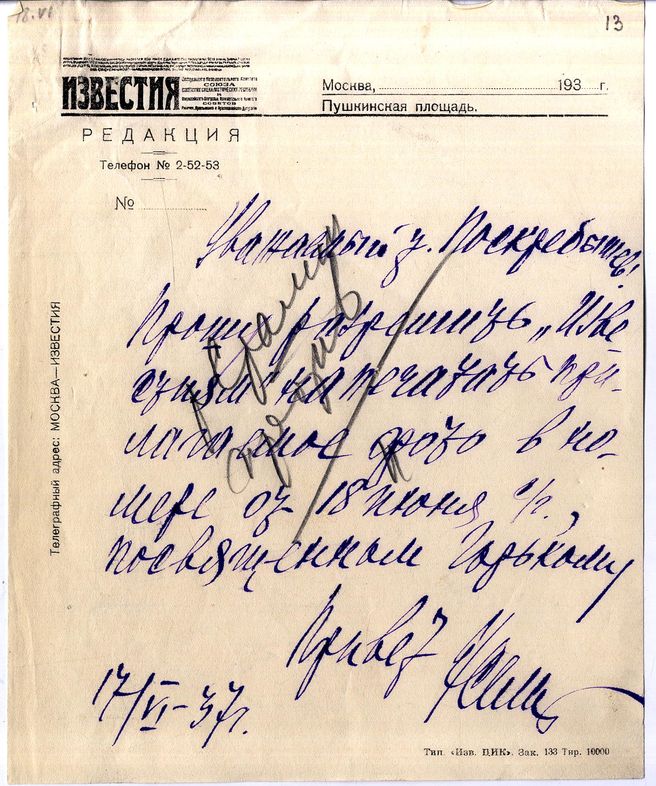 18.VI
13
ИЗВЕСТИЯ
СОЮЗА
СОВЕТОВ
Москва, 193 г.
Пушкинская площадь.
РЕДАКЦИЯ
Телефон № 2-52-53
№
Телеграфный адрес: МОСКВА—ИЗВЕСТИЯ
Уважаемый т. Поскребышев!
Прошу разрешить „Изве
стиям" напечатать при-
лагаемое фото в но-
мере от 18 июня с/г.,
посвященном Горькому
Привет
17/VI-37г.
Тип. «Изв. ЦИК». Зак. 133 Тир. 10000